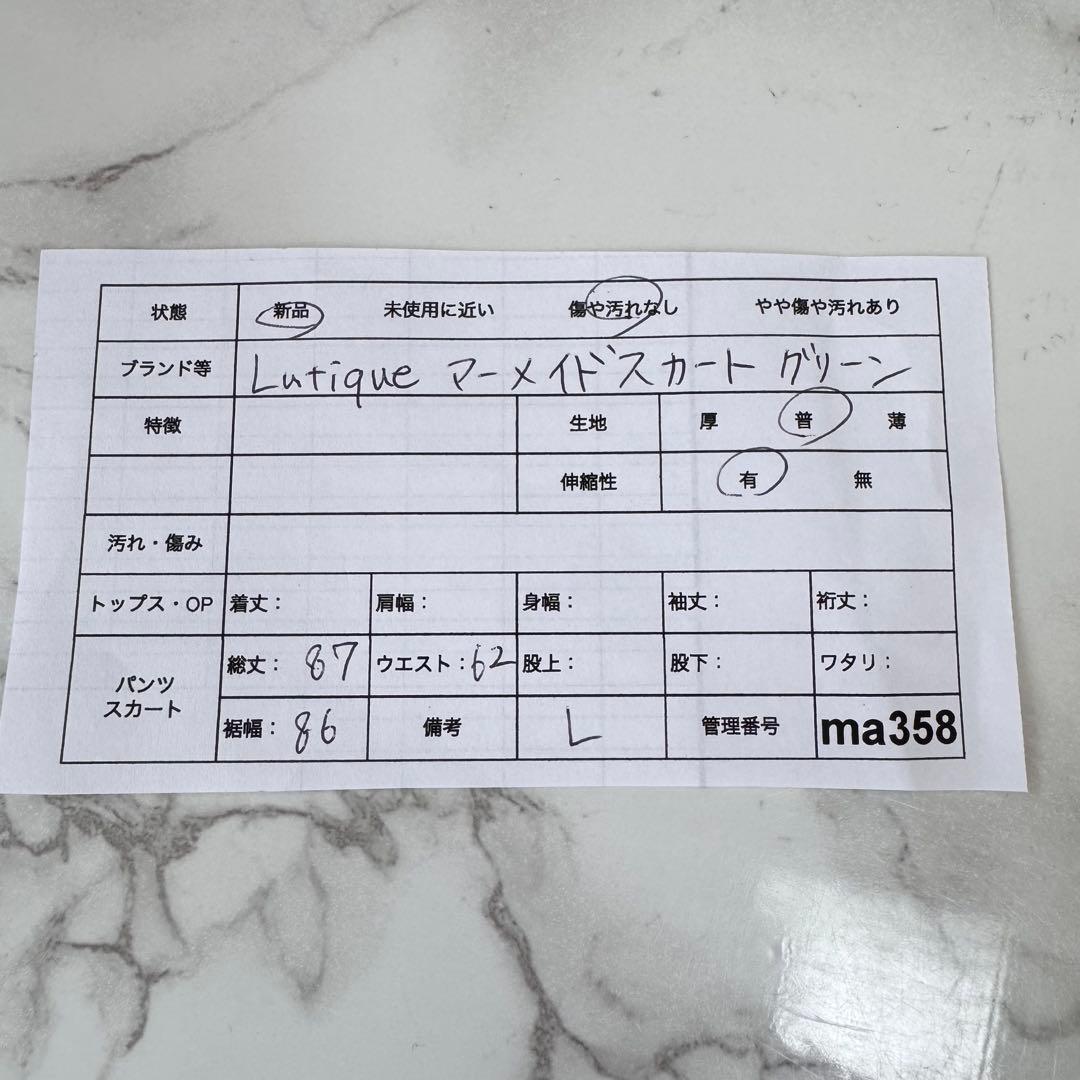 状態 新品 未使用に近い 傷や汚れなし やや傷や汚れあり
ブランド等 Lutique マーメイドスカート グリーン
特徴 生地 厚 普 薄
伸縮性 有 無
汚れ・傷み
トップス・OP 着丈: 肩幅: 身幅: 袖丈: 裄丈:
パンツ スカート 総丈: 87 ウエスト: 62 股上: 股下: ワタリ:
裾幅: 86 備考 L 管理番号 ma358